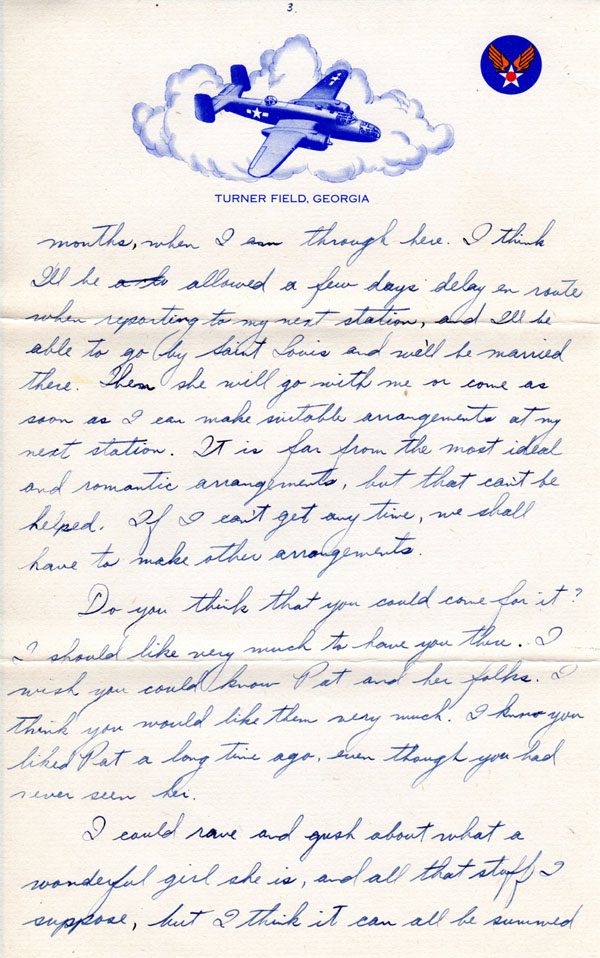 3.
TURNER FIELD, GEORGIA
months, when I am through here. I think
I'll be allowed a few days delay en route
when reporting to my next station, and I'll be
able to go by Saint Louis and we'll be married
there. Then she will go with me or come as
soon as I can make suitable arrangements at my
next station. It is far from the most ideal
and romantic arrangements, but that can't be
helped. If I can't get any time, we shall
have to make other arrangements.
Do you think that you could come for it?
I should like very much to have you there. I
wish you could know Pat and her folks. I
think you would like them very much. I know you
liked Pat a long time ago, even though you had
never seen her.
I could rave and gush about what a
wonderful girl she is, and all that stuff, I
suppose, but I think it can all be summed